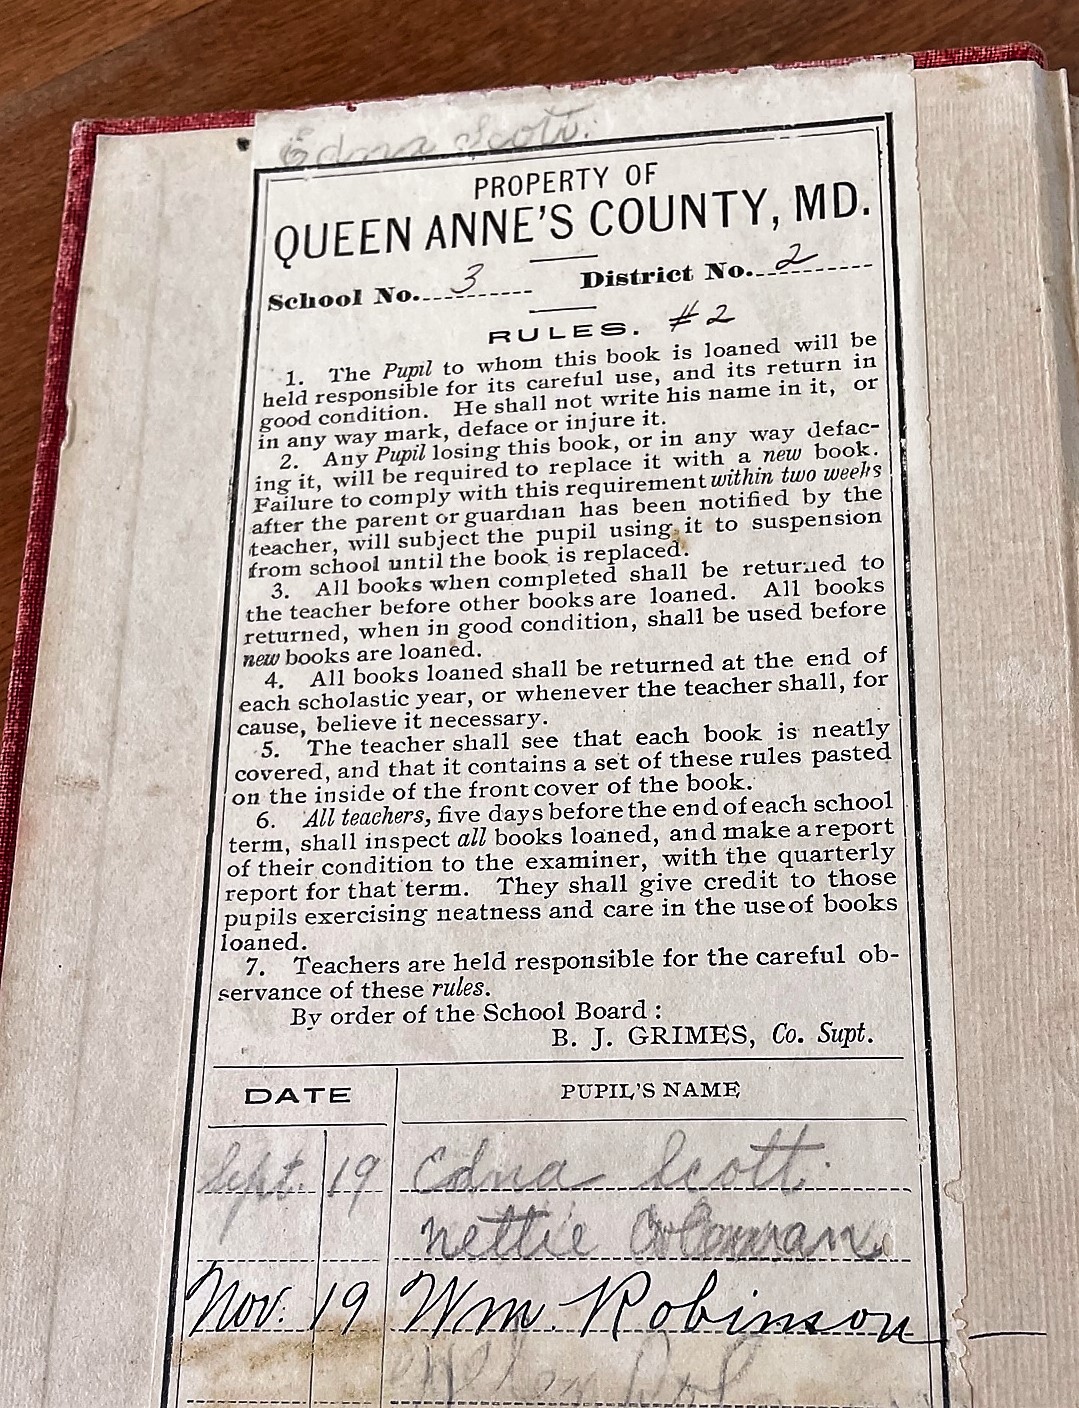 Edna Scott.
PROPERTY OF
QUEEN ANNE'S COUNTY, MD.
School No. 3 District No. 2
RULES. #2
1. The Pupil to whom this book is loaned will be
held responsible for its careful use, and its return in
good condition. He shall not write his name in it, or
in any way mark, deface or injure it.
2. Any Pupil losing this book, or in any way defac-
ing it, will be required to replace it with a new book.
Failure to comply with this requirement within two weeks
after the parent or guardian has been notified by the
teacher, will subject the pupil using it to suspension
from school until the book is replaced.
3. All books when completed shall be returned to
the teacher before other books are loaned. All books
returned, when in good condition, shall be used before
new books are loaned.
4. All books loaned shall be returned at the end of
each scholastic year, or whenever the teacher shall, for
cause, believe it necessary.
5. The teacher shall see that each book is neatly
covered, and that it contains a set of these rules pasted
on the inside of the front cover of the book.
6. All teachers, five days before the end of each school
term, shall inspect all books loaned, and make a report
of their condition to the examiner, with the quarterly
report for that term. They shall give credit to those
pupils exercising neatness and care in the use of books
loaned.
7. Teachers are held responsible for the careful ob-
servance of these rules.
By order of the School Board:
B. J. GRIMES, Co. Supt.
DATE PUPIL'S NAME
Sept. 19 Edna Scott.
Nettie Coleman
Nov. 19 Wm. Robinson